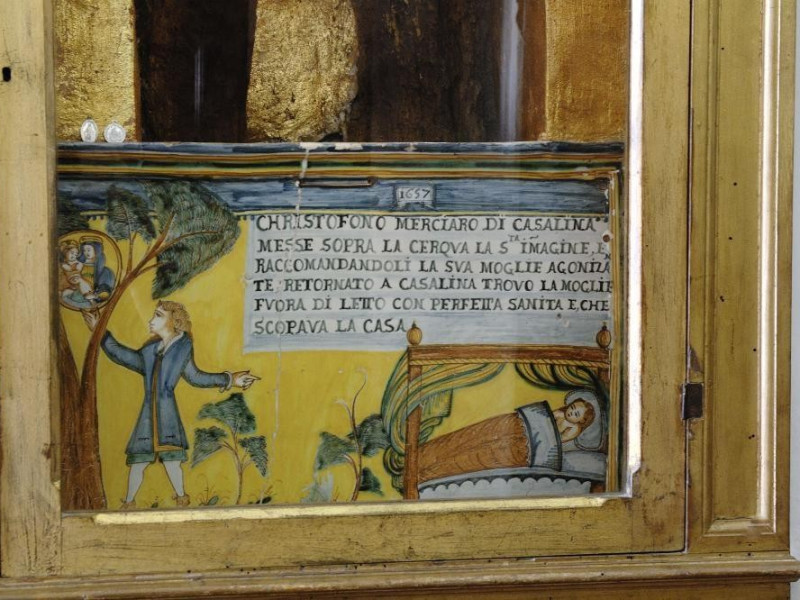 1657
CHRISTOFONO MERCIARO DI CASALINA
MESSE SOPRA LA CERQVA LA S.TA IMAGINE, E
RACCOMANDANDOLI LA SVA MOGLIE AGONIZA
TE, RETORNATO A CASALINA TROVO LA MOGLIE
FVORA DI LETTO CON PERFETTA SANITA E, CHE
SCOPAVA LA CASA